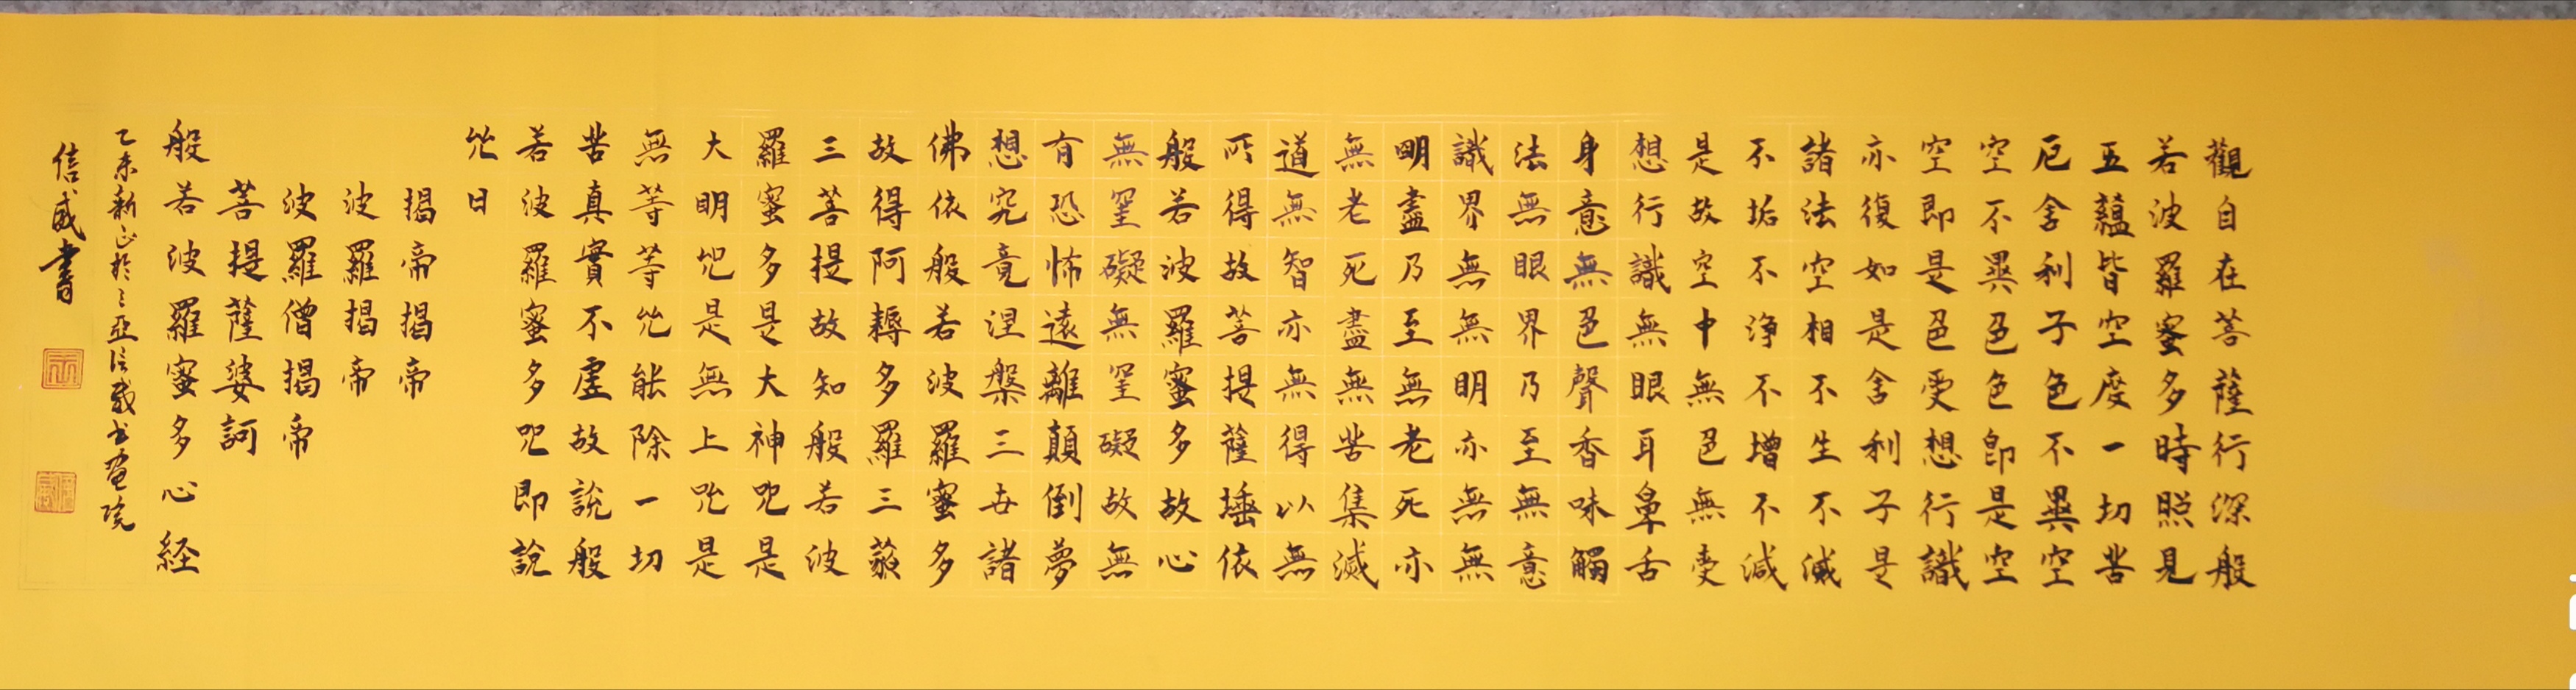 觀自在菩薩行深般
若波羅蜜多時照見
五蘊皆空度一切苦
厄舍利子色不異空
空不異色色即是空
空即是色受想行識
亦復如是舍利子是
諸法空相不生不滅
不垢不淨不增不減
是故空中無色無受
想行識無眼耳鼻舌
身意無色聲香味觸
法無眼界乃至無意
識界無無明亦無無
明盡乃至無老死亦
無老死盡無苦集滅
道無智亦無得以無
所得故菩提薩埵依
般若波羅蜜多故心
無罣礙無罣礙故無
有恐怖遠離顛倒夢
想究竟涅槃三世諸
佛依般若波羅蜜多
故得阿耨多羅三藐
三菩提故知般若波
羅蜜多是大神咒是
大明咒是無上咒是
無等等咒能除一切
苦真實不虛故說般
若波羅蜜多咒即說
咒曰
揭帝揭帝
波羅揭帝
波羅僧揭帝
菩提薩婆訶
般若波羅蜜多心経
乙未新正於三亞信威書畫院
信威書